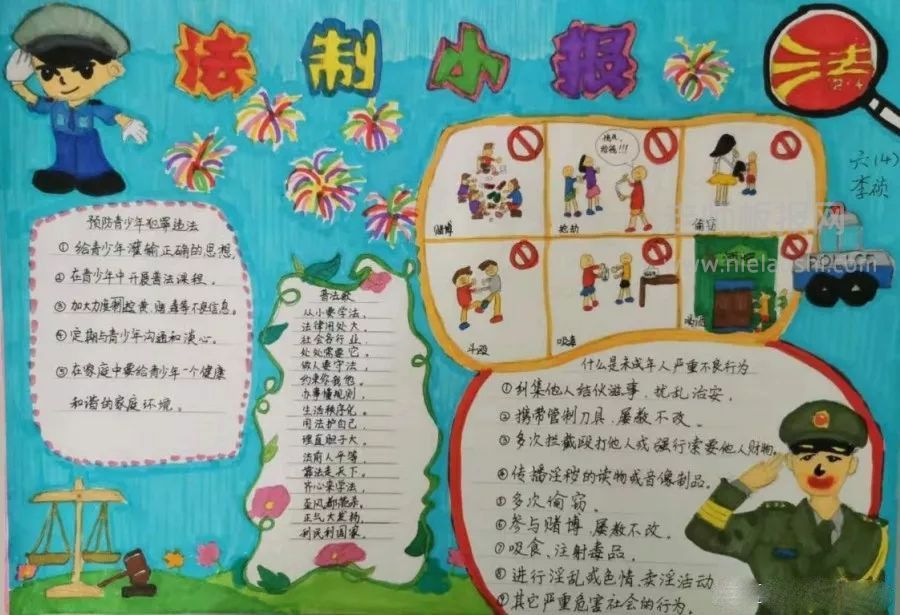 法制小报
法
六(4)
李祯
预防青少年犯罪违法
①给青少年灌输正确的思想。
②在青少年中开展普法课程。
③加大力度制控黄、赌、毒等不良信息。
④定期与青少年沟通和谈心。
⑤在家庭中要给青少年一个健康
和谐的家庭环境。
普法歌
从小要学法,
法律用处大。
社会各行业,
处处需要它。
做人要守法,
约束你我他。
办事懂规则,
生活秩序化。
用法护自己,
理直胆子大。
法前人平等
靠法走天下。
齐心来学法,
歪风都荡杀。
正气大发扬,
利民利国家。
赌博
抢劫
抢劫!!!
偷窃
斗殴
吸毒
POLICE
www.nielanshi.com
什么是未成年人严重不良行为
①纠集他人结伙滋事,扰乱治安。
②携带管制刀具,屡教不改。
③多次拦截殴打他人或强行索要他人财物。
④传播淫秽的读物或音像制品。
⑤多次偷窃。
⑥参与赌博,屡教不改。
⑦吸食、注射毒品。
⑧进行淫乱或色情、卖淫活动
⑨其它严重危害社会的行为。